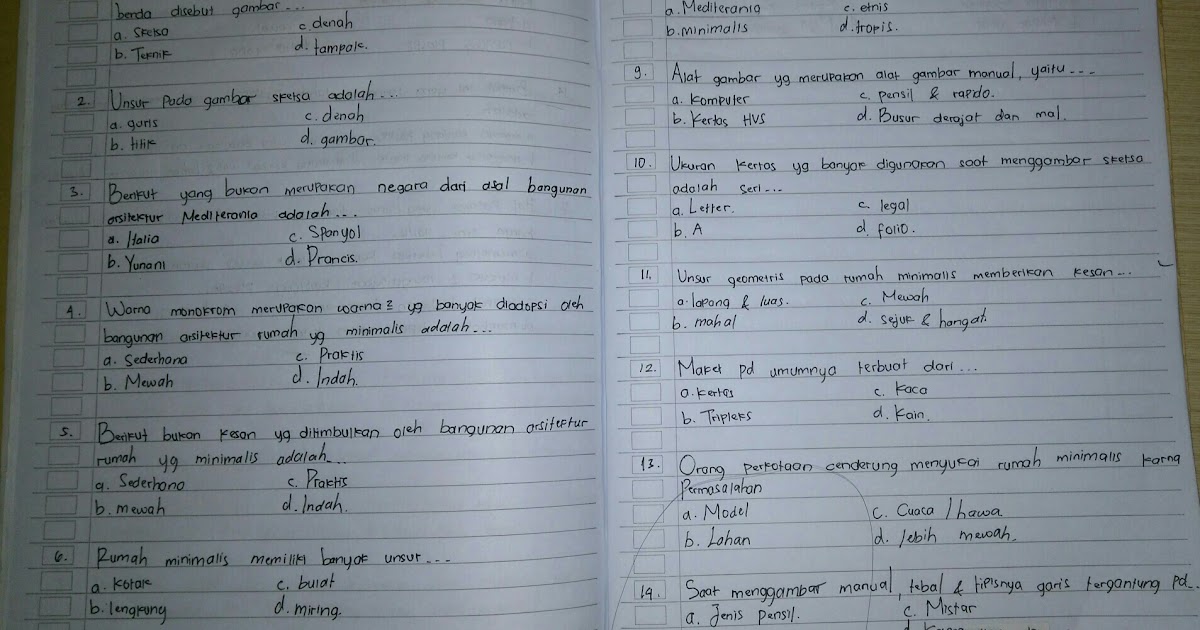 benda disebut gambar...
a. Sketsa c. denah
b. Teknik d. tampak.
2. Unsur pada gambar sketsa adalah...
a. garis c. denah
b. titik d. gambar.
3. Berikut yang bukan merupakan negara dari asal bangunan
arsitektur Mediterania adalah...
a. Italia c. Spanyol
b. Yunani d. Prancis.
4. Warna monokrom merupakan warna2 yg banyak diadopsi oleh
bangunan arsitektur rumah yg minimalis adalah...
a. Sederhana c. Praktis
b. Mewah d. Indah.
5. Berikut bukan kesan yg ditimbulkan oleh bangunan arsitektur
rumah yg minimalis adalah...
a. Sederhana c. Praktis
b. mewah d. Indah.
6. Rumah minimalis memiliki banyak unsur...
a. kotak c. bulat
b. lengkung d. miring.
a. Mediterania c. etnis
b. minimalis d. tropis.
9. Alat gambar yg merupakan alat gambar manual, yaitu...
a. Komputer c. pensil & rapido.
b. Kertas HVS d. Busur derajat dan mal.
10. Ukuran kertas yg banyak digunakan saat menggambar sketsa
adalah seri...
a. Letter. c. legal
b. A d. folio.
11. Unsur geometris pada rumah minimalis memberikan kesan...
a. lapang & luas. c. Mewah
b. mahal d. sejuk & hangat.
12. Maket pd umumnya terbuat dari...
a. kertas c. kaca
b. Tripleks d. kain.
13. Orang perkotaan cenderung menyukai rumah minimalis karna
Permasalahan
a. Model c. Cuaca / hawa
b. Lahan d. lebih mewah.
14. Saat menggambar manual, tebal & tipisnya garis tergantung pd...
a. Jenis pensil. c. Mistar